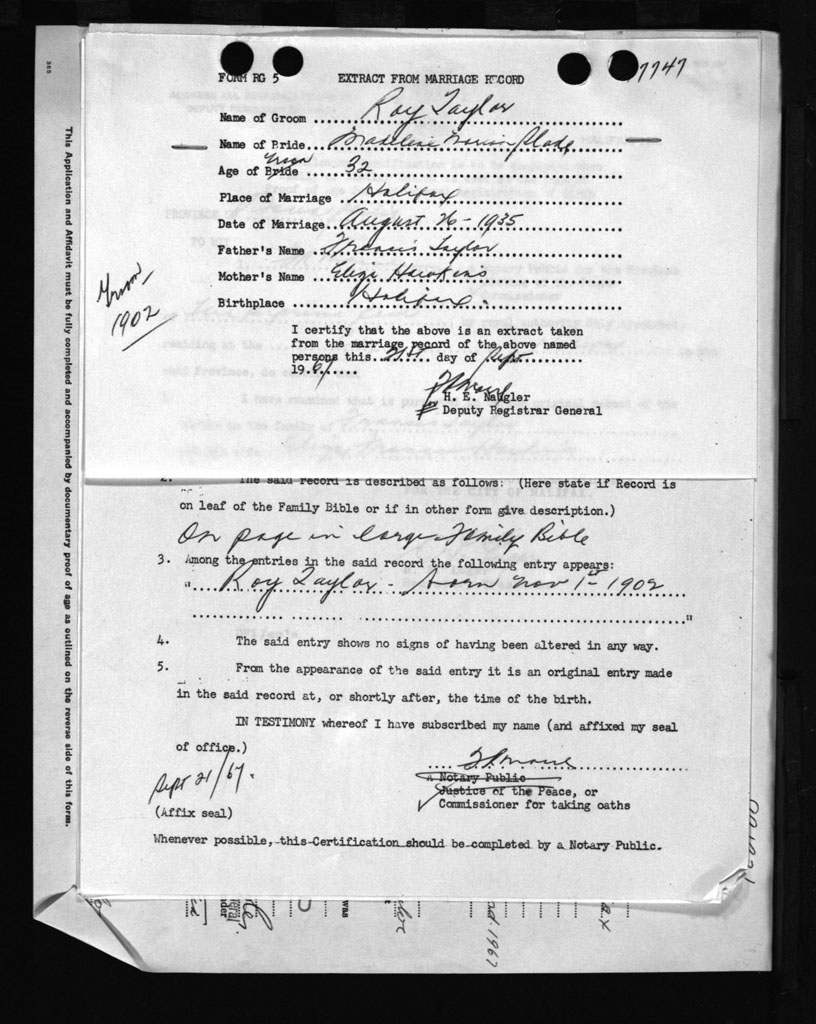 FORM RG 5 EXTRACT FROM MARRIAGE RECORD 7747
Name of Groom Roy Taylor
Name of Bride Madeline
Age of Bride Groom 32
Place of Marriage Halifax
Date of Marriage August 26 - 1935
Father's Name Francis Taylor
Mother's Name Eliza Hawkins
Birthplace Halifax
Groom
1902
I certify that the above is an extract taken
from the marriage record of the above named
persons this 21st day of Sept
1967
H. E. Naugler
Deputy Registrar General
2. The said record is described as follows: (Here state if Record is
on leaf of the Family Bible or if in other form give description.)
On page in large Family Bible
3. Among the entries in the said record the following entry appears:
" Roy Taylor - born Nov 1st 1902
"
4. The said entry shows no signs of having been altered in any way.
5. From the appearance of the said entry it is an original entry made
in the said record at, or shortly after, the time of the birth.
IN TESTIMONY whereof I have subscribed my name (and affixed my seal
of office.)
Sept 21/67.
A Notary Public
Justice of the Peace, or
Commissioner for taking oaths
(Affix seal)
Whenever possible, this Certification should be completed by a Notary Public.
This Application and Affidavit must be fully completed and accompanied by documentary proof of age as outlined on the reverse side of this form.
was
1967